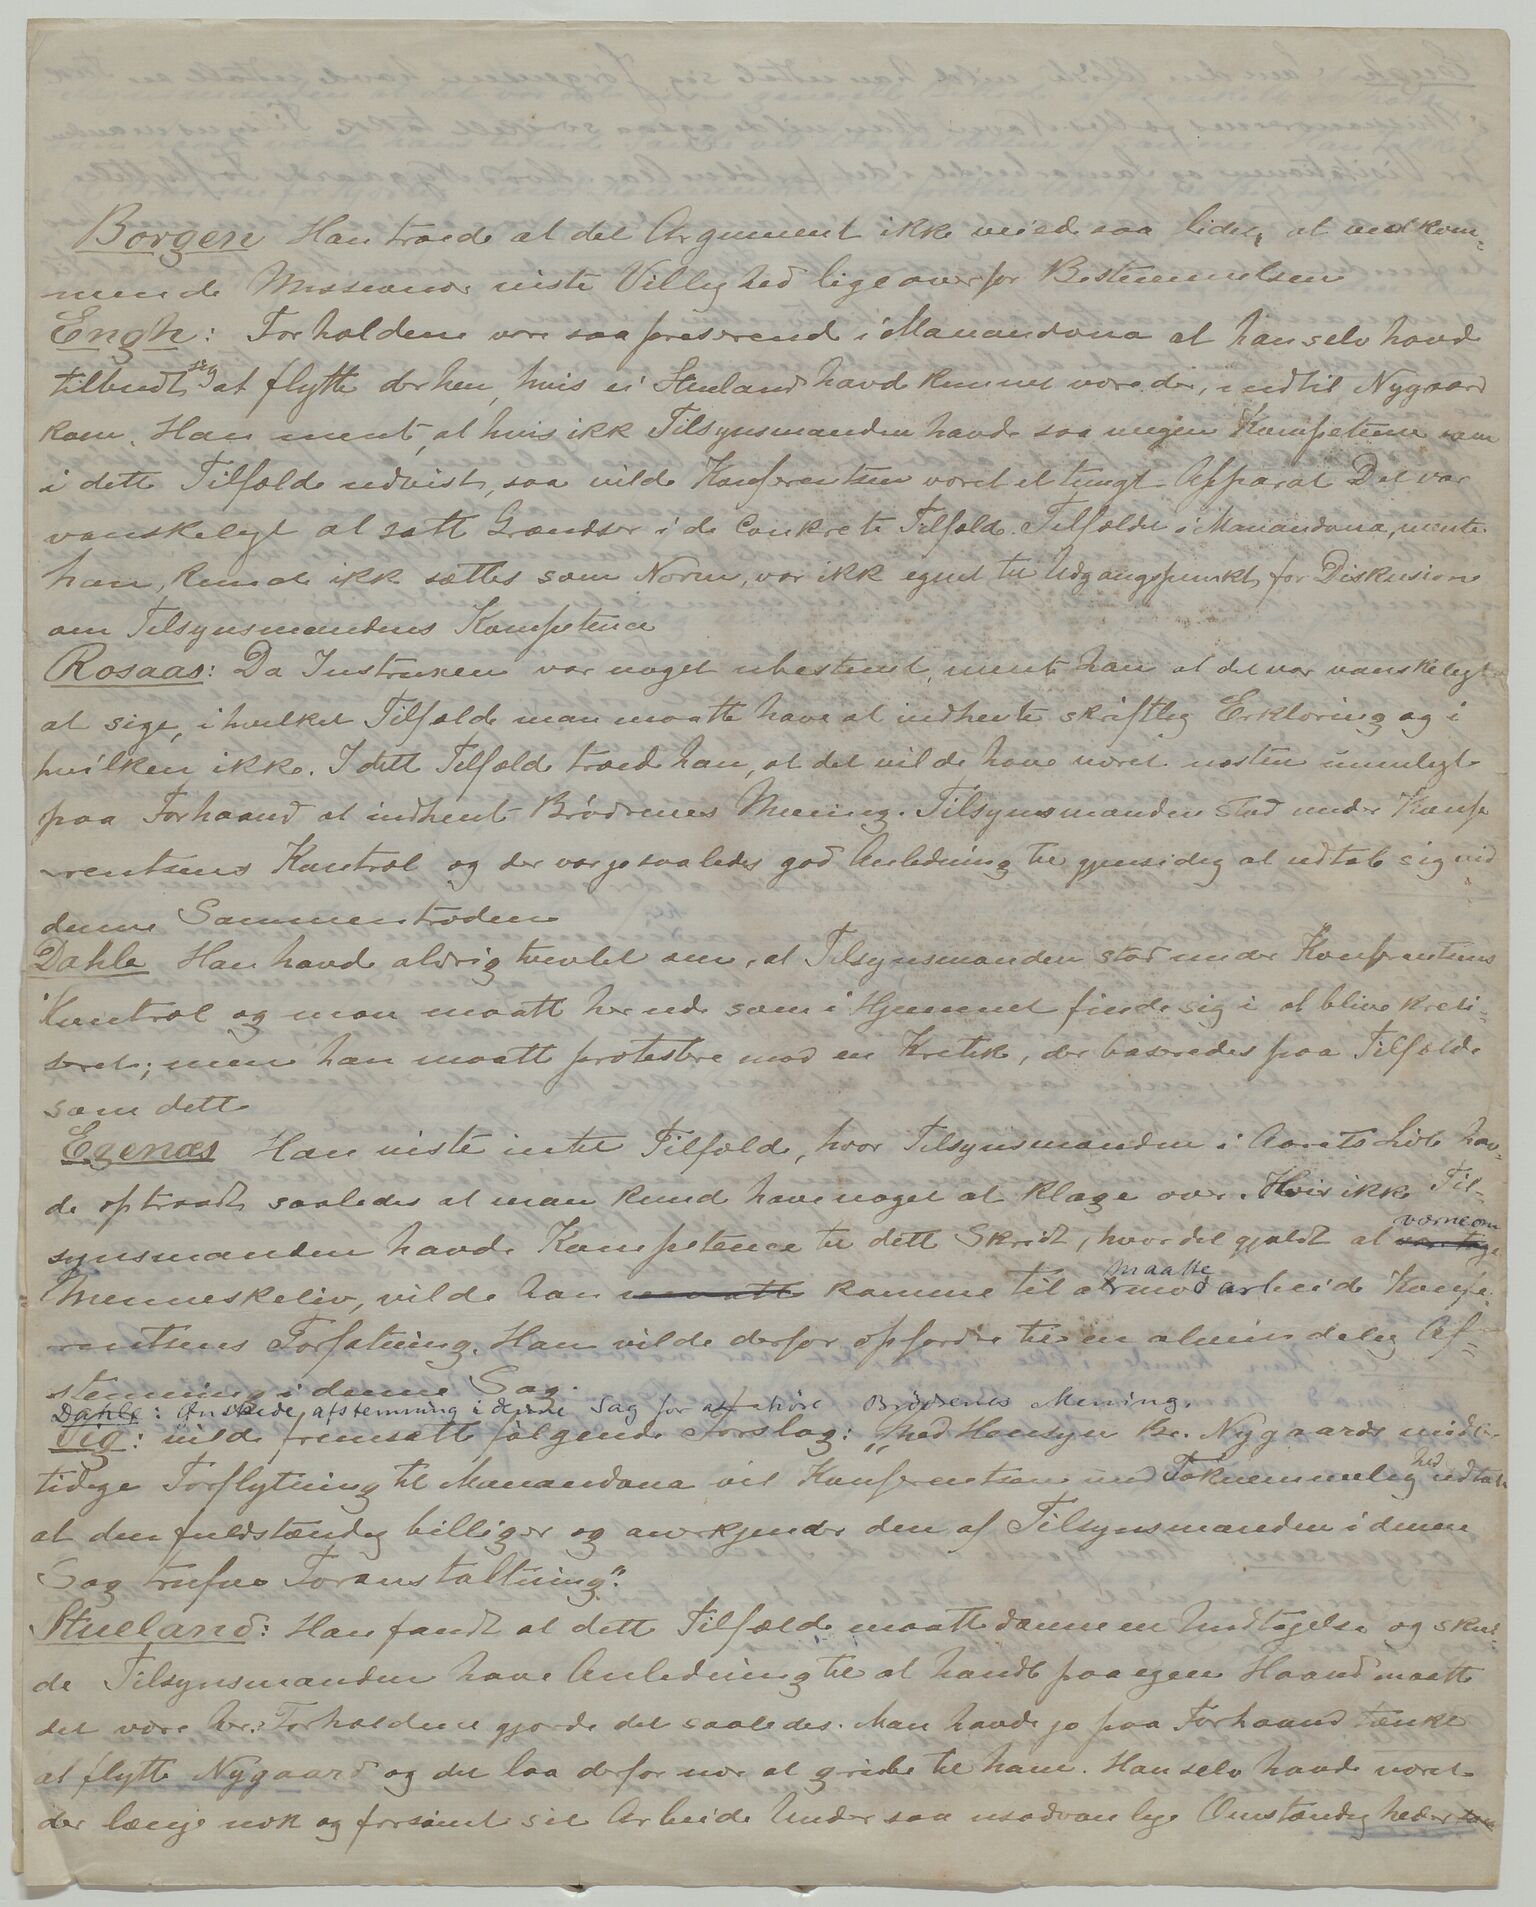 Borgen Han troede at det Argument ikke veiede saa lidet, at vedkom-
mende Missionær viste Villighed ligeoverfor Bestemmelsen
Engh: Forholdene vare saa preserende i Manandona at han selv havde
tilbudt sig at flytte derhen, hvis ei Stueland havde kunnet være der, indtil Nygaard
kom. Han mente, at hvis ikke Tilsynsmanden havde saa megen Kompetence som
i dette Tilfælde udvist, saa vilde Konferentsen været et tungt Apparat. Det var
vanskeligt at sætte Grændser i de Conkrete Tilfælde. Tilfældet i Manandona, mente
han, kunde ikke sættes som Norm, var ikke egnet til Udgangspunkt for Diskusion
om Tilsynsmandens Kompetence
Rosaas: Da Instruxen var noget ubestemt, mente han at det var vanskeligt
at sige, i hvilket Tilfælde man maatte have at indhente skriftlig Erklæring og i
hvilken ikke. I dette Tilfælde troede han, at det vilde have været næsten umuligt
paa Forhaand at indhente Brødrenes Mening. Tilsynsmanden stod under Konfe
rentsens Kontrol og der var jo saaledes god Anledning til gjensidig at udtale sig ved
denne Sammentræden
Dahle Han havde aldrig tvivlet om, at Tilsynsmanden stod under Konferentsens
Kontrol og man maatte her ude som i Hjemmet finde sig i at blive kriti-
seret; men han maatte protestere mod en Kritik, der baseredes paa Tilfælde
som dette
Egenæs Han viste intet Tilfælde, hvor Tilsynsmanden i Aarets Løb hav-
de optraadt saaledes at man kunde have noget at klage over. Hvis ikke Til-
synsmanden havde Kompetence til dette Skridt, hvor det gjaldt at værne om
Menneskeliv, vilde han komme til at maatte modarbeide Konfe-
rentsens Forfatning. Han vilde derfor opfordre til en almindelig Af-
stemning i denne Sag.
Dahle: Ønskede afstemning i denne Sag for at høre Brødrenes Mening.
Vig: vilde fremsatte følgende Forslag: "Med Hensyn Br. Nygaards midler-
tidige Forflytning til Manandona vil Konferentsen med Taknemmelighed udtale
at den fuldstændig billiger og anerkjender den af Tilsynsmanden i denne
Sag trufne Foranstaltning".
Stueland: Han fandt at dette Tilfælde maatte danne en Undtagelse og skul-
de Tilsynsmanden have Anledning til at handle paa egen Haand maatte
det være her. Forholdene gjorde det saaledes. Man havde jo paa Forhaand tænkt
at flytte Nygaard og det laa derfor nær at gribe til ham. Han selv havde været
der længe nok og forsømt sit Arbeide Under saa usædvanlige Omstændigheder